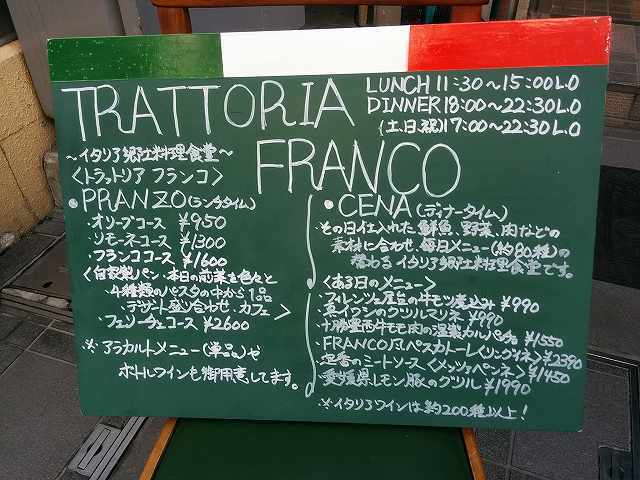 TRATTORIA FRANCO
LUNCH 11:30〜15:00L.O
DINNER 18:00〜22:30L.O
(土.日.祝)17:00〜22:30L.O
〜イタリア郷土料理食堂〜
〈トラットリア フランコ〉
・PRANZO(ランチタイム)
・オリーブコース ¥950
・リモーネコース ¥1300
・フランココース ¥1600
〈自家製パン・本日の前菜を色々と
4種類のパスタの中から1品
デザート盛り合わせ、カフェ〉
・フェリーチェコース ¥2600
※アラカルトメニュー(単品)や
ボトルワインも御用意してます。
・CENA(ディナータイム)
・その日仕入れた鮮魚、野菜、肉などの
素材に合わせ、毎日メニュー(約80種)の
替わるイタリア郷土料理食堂です。
〈ある日のメニュー〉
・フィレンツェ屋台の牛モツ煮込み ¥990
・真イワシのクワルマリネ ¥990
・十勝豊西牛モモ肉の温製カルパッチョ ¥1550
・FRANCO風ペスカトーレ〈リングイネ〉¥2390
・定番のミートソース〈メッツェペンネ〉¥1450
・愛媛県レモン豚のグリル ¥1990
※イタリアワインは約200種以上!